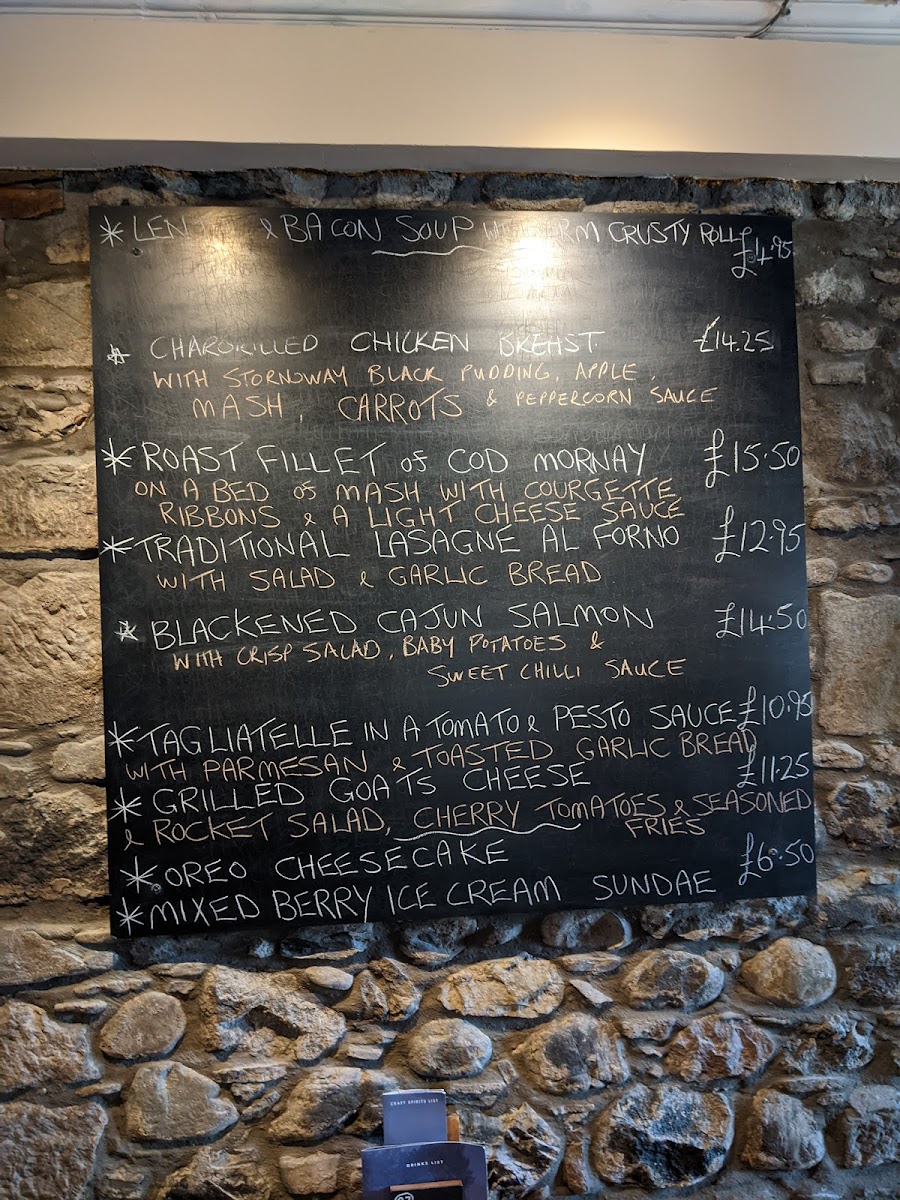 * & BACON SOUP CRUSTY ROLL
£4.95
* CHARGRILLED CHICKEN BREAST £14.25
WITH STORNOWAY BLACK PUDDING, APPLE,
MASH, CARROTS & PEPPERCORN SAUCE
* ROAST FILLET of COD MORNAY £15.50
ON A BED of MASH WITH COURGETTE
RIBBONS & A LIGHT CHEESE SAUCE
* TRADITIONAL LASAGNE AL FORNO £12.95
WITH SALAD & GARLIC BREAD
* BLACKENED CAJUN SALMON £14.50
WITH CRISP SALAD, BABY POTATOES &
SWEET CHILLI SAUCE
* TAGLIATELLE IN A TOMATO & PESTO SAUCE £10.95
WITH PARMESAN & TOASTED GARLIC BREAD
* GRILLED GOATS CHEESE £11.25
& ROCKET SALAD, CHERRY TOMATOES & SEASONED
FRIES
* OREO CHEESECAKE £6.50
* MIXED BERRY ICE CREAM SUNDAE
CRAFT SPIRITS LIST
DRINKS LIST